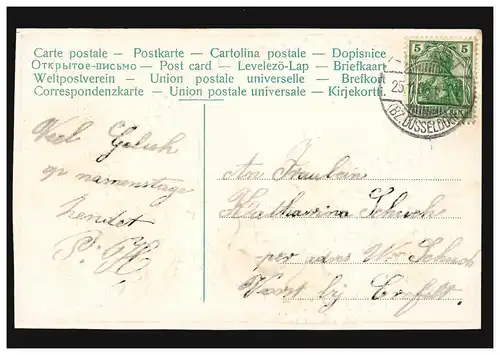 Carte postale — Postkarte — Cartolina postale — Dopisnice
Открытое-письмо — Post card — Levelezö-Lap — Briefkaart
Weltpostverein — Union postale universelle — Brefkort
Correspondenzkarte — Union postale universale — Kirjekortti
5 5
25.11.
(BZ. DÜSSELDORF)
Veel Geluk
op namenstage
zendet
P. H.
An Fräulein
Katharina Schuch
per adres Wr Schuch
Vorst by Crefeld.